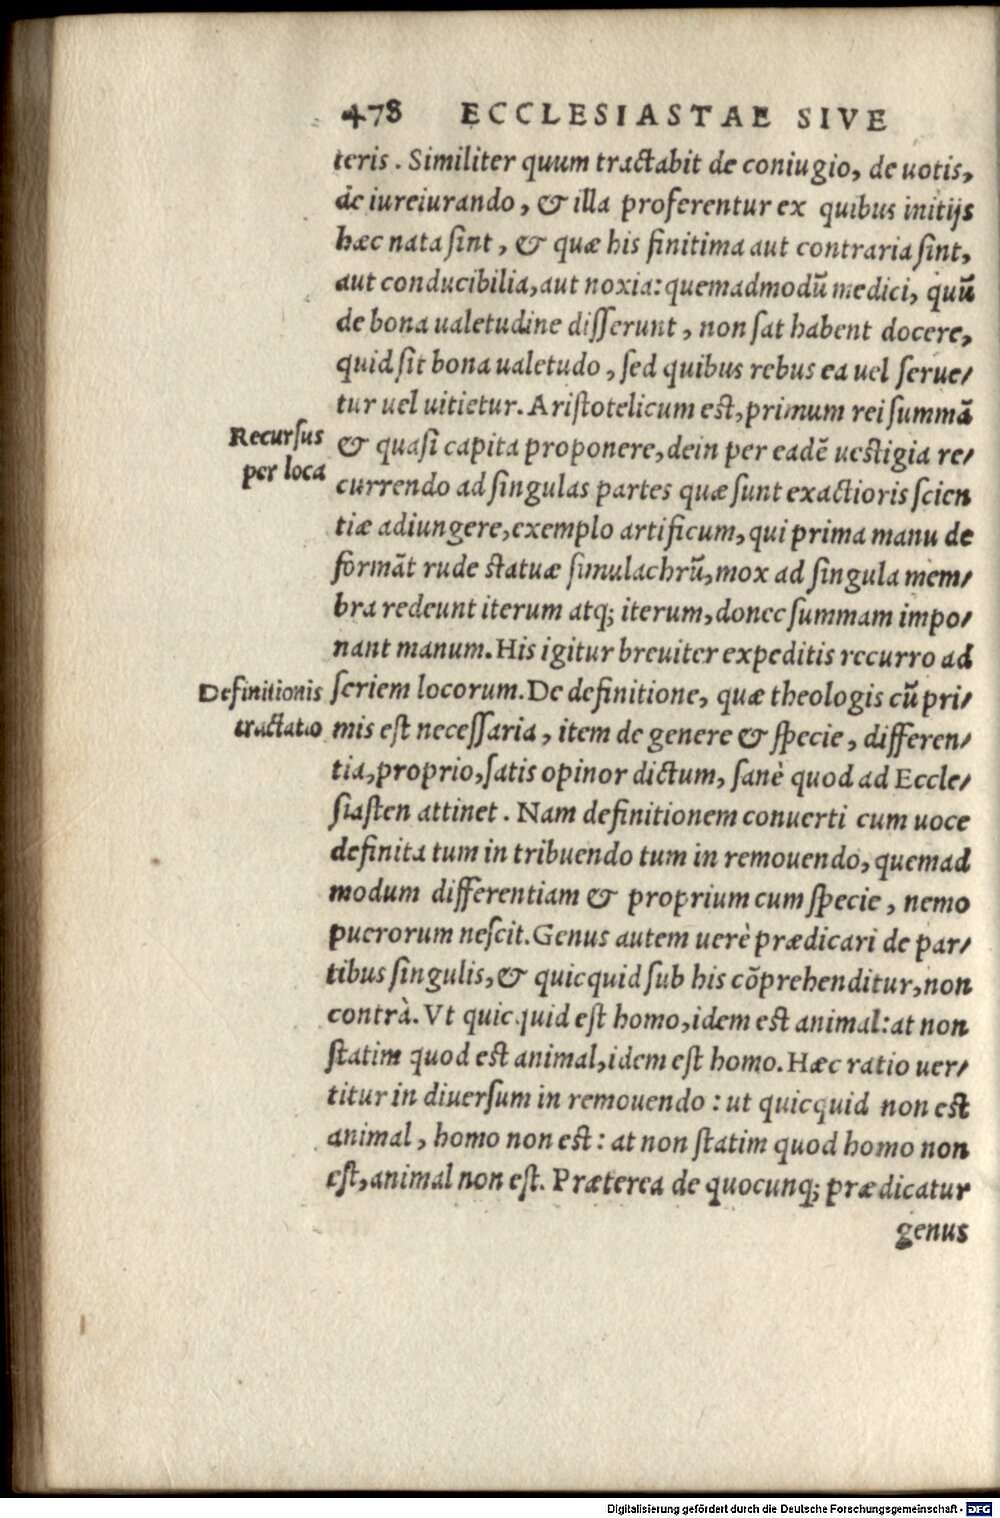 478 ECCLESIASTAE SIVE
teris. Similiter quum tractabit de coniugio, de uotis,
de iureiurando, & illa proferentur ex quibus initijs
hæc nata sint, & quæ his finitima aut contraria sint,
aut conducibilia, aut noxia: quemadmodũ medici, quũ
de bona ualetudine disserunt, non sat habent docere,
quid sit bona ualetudo, sed quibus rebus ea uel serue/
tur uel uitietur. Aristotelicum est, primum rei summã
Recursus
per loca
& quasi capita proponere, dein per eadẽ uestigia re/
currendo ad singulas partes quæ sunt exactioris scien
tiæ adiungere, exemplo artificum, qui prima manu de
formãt rude statuæ simulachrũ, mox ad singula mem/
bra redeunt iterum atq; iterum, donec summam impo/
nant manum. His igitur breuiter expeditis recurro ad
Definitionis
tractatio
seriem locorum. De definitione, quæ theologis cũ pri/
mis est necessaria, item de genere & specie, differen/
tia, proprio, satis opinor dictum, sanè quod ad Eccle/
siasten attinet. Nam definitionem conuerti cum uoce
definita tum in tribuendo tum in remouendo, quemad
modum differentiam & proprium cum specie, nemo
puerorum nescit. Genus autem uerè prædicari de par/
tibus singulis, & quicquid sub his cõprehenditur, non
contrà. Vt quicquid est homo, idem est animal: at non
statim quod est animal, idem est homo. Hæc ratio uer/
titur in diuersum in remouendo: ut quicquid non est
animal, homo non est: at non statim quod homo non
est, animal non est. Præterea de quocunq; prædicatur
genus
Digitalisierung gefördert durch die Deutsche Forschungsgemeinschaft - DFG